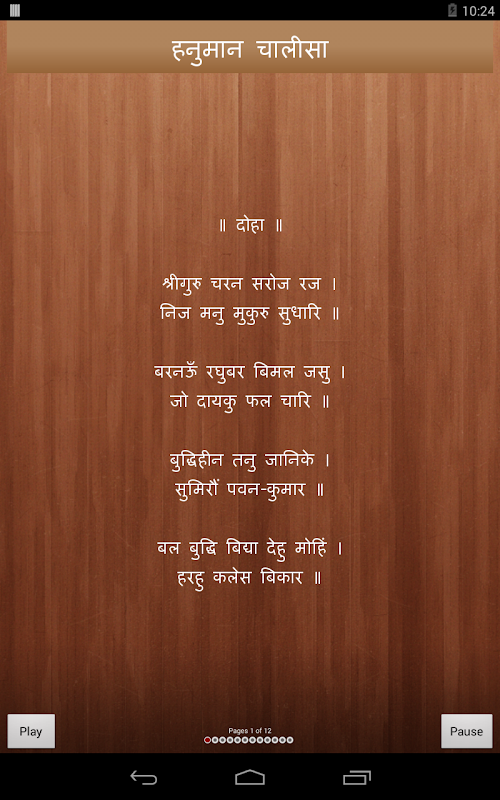 10:24
हनुमान चालीसा
॥ दोहा ॥
श्रीगुरु चरन सरोज रज ।
निज मनु मुकुरु सुधारि ॥
बरनऊँ रघुबर बिमल जसु ।
जो दायकु फल चारि ॥
बुद्धिहीन तनु जानिके ।
सुमिरौं पवन-कुमार ॥
बल बुद्धि बिद्या देहु मोहिं ।
हरहु कलेस बिकार ॥
Play
Pages 1 of 12
Pause